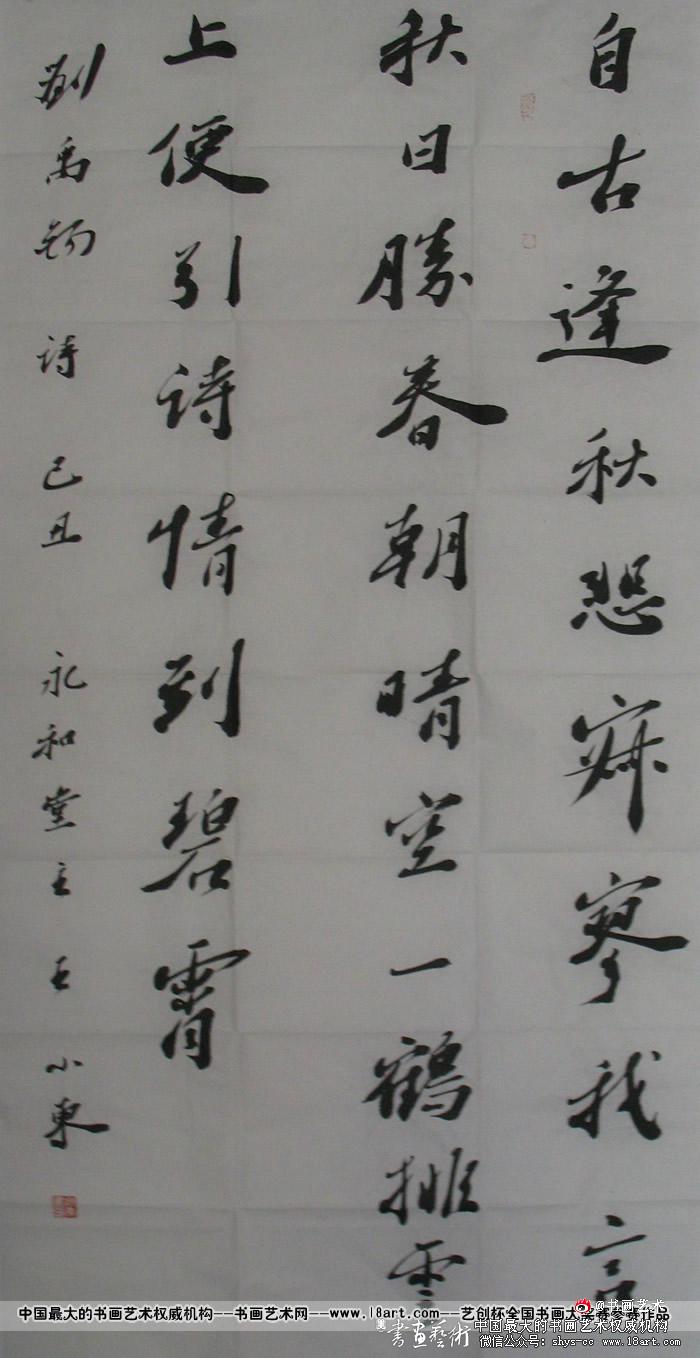 自古逢秋悲寂寥我言
秋日勝春朝晴空一鶴排雲
上便引诗情到碧霄
劉禹锡 诗 己丑 永和堂主 王小東
中国最大的书画艺术权威机构--书画艺术网--www.18art.com--艺创杯全国书画大奖赛参赛作品
@书画艺术
書画藝術
中国最大的书画艺术权威机构
微信公众号: shys-cc 18art.com